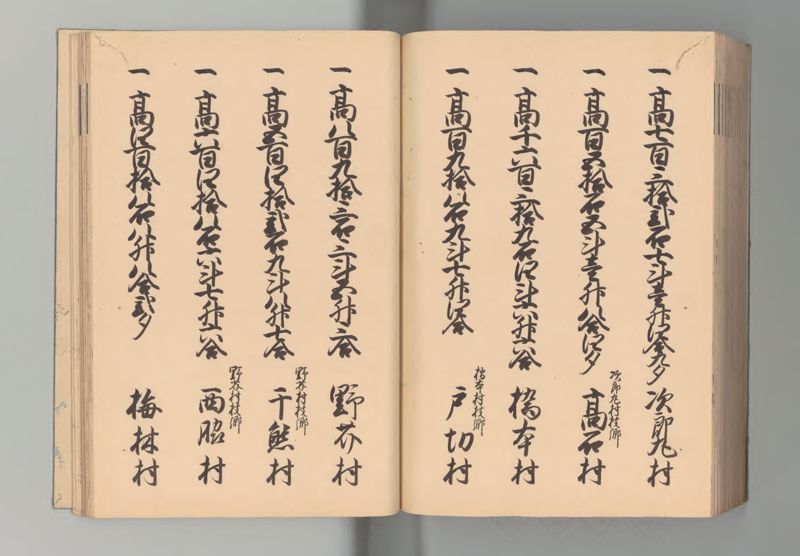 一高七百三拾弐石七斗壱升四合九夕 次郎丸村
一高百五拾石五斗壱升八合四夕 次郎丸村枝郷 高石村
一高千六百三拾九石四斗六升六合 橋本村
一高百九拾八石九斗七升四合 橋本村枝郷 戸切村
一高八百九拾三石三斗五升 野芥村
一高五百四拾弐石九斗八升七合 野芥村枝郷 千熊村
一高六百四拾八石六斗七升六合 野芥村枝郷 西脇村
一高四百拾八石八升八合弐夕 梅林村